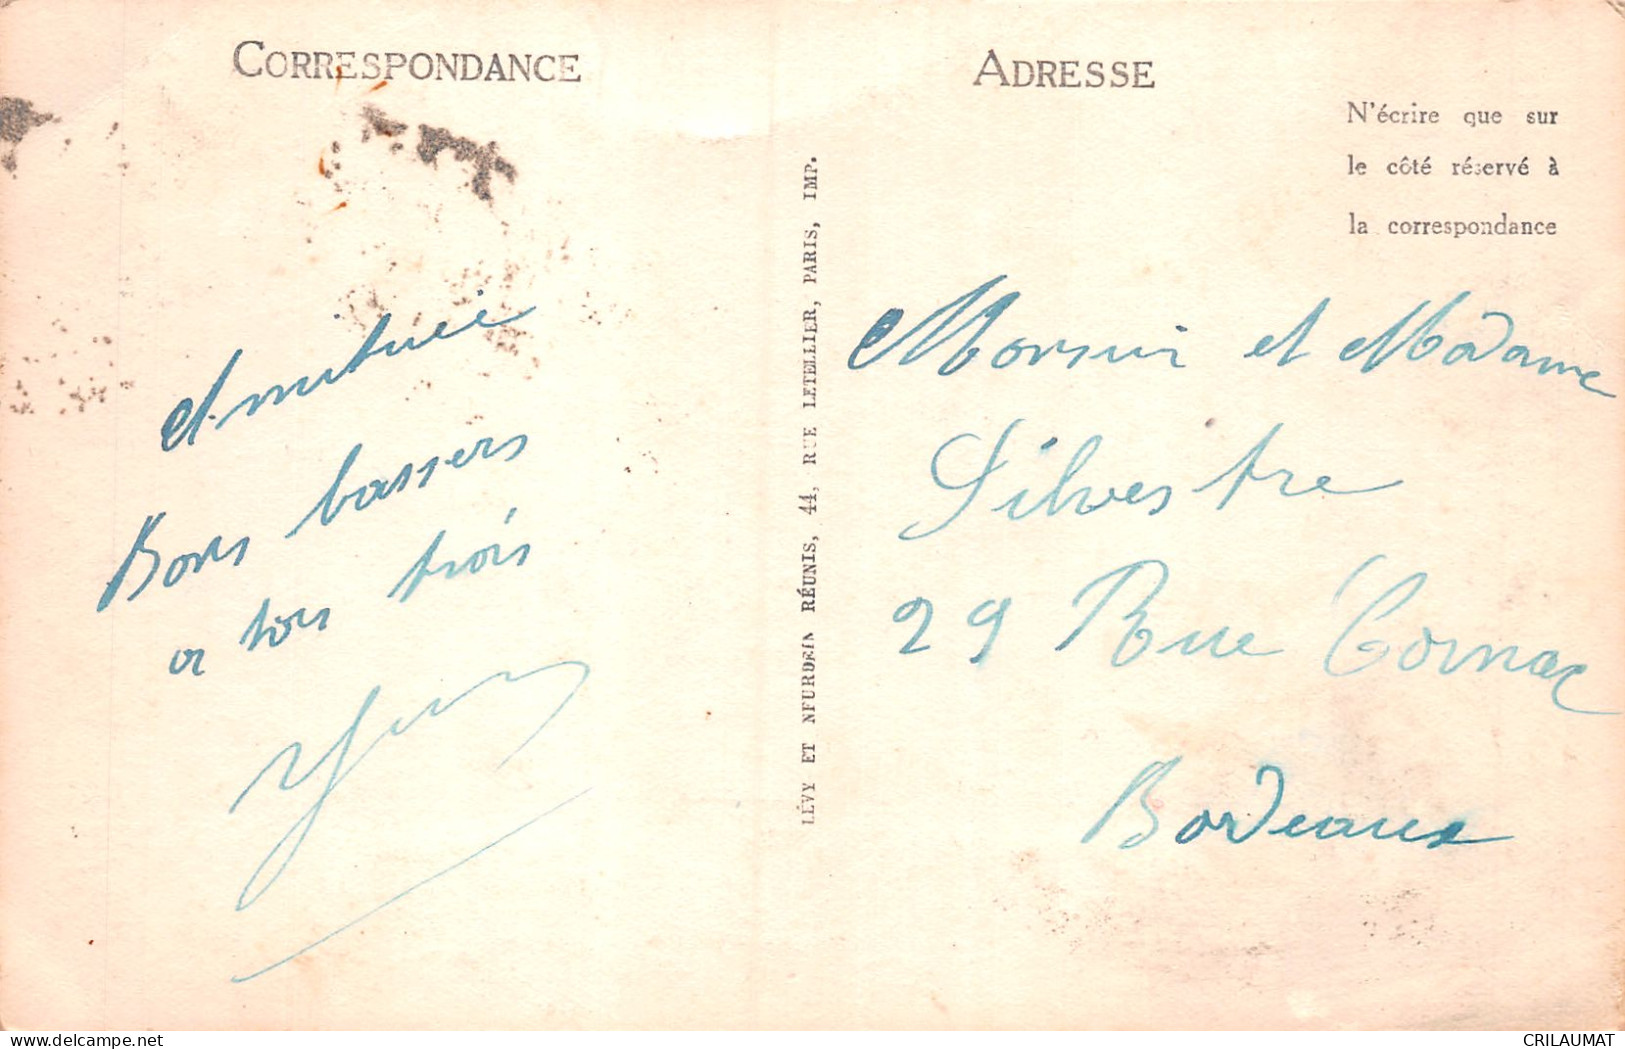 CORRESPONDANCE
Amitiée
Bons bassers
a tous trois
LÉVY ET NEURDEIN RÉUNIS, 44, RUE LETELLIER, PARIS, IMP.
ADRESSE
N'écrire que sur
le côté réservé à
la correspondance
Monsieur et Madame
Silvestre
29 Rue Cornac
Bordeaux
delcampe.net
CRILAUMAT